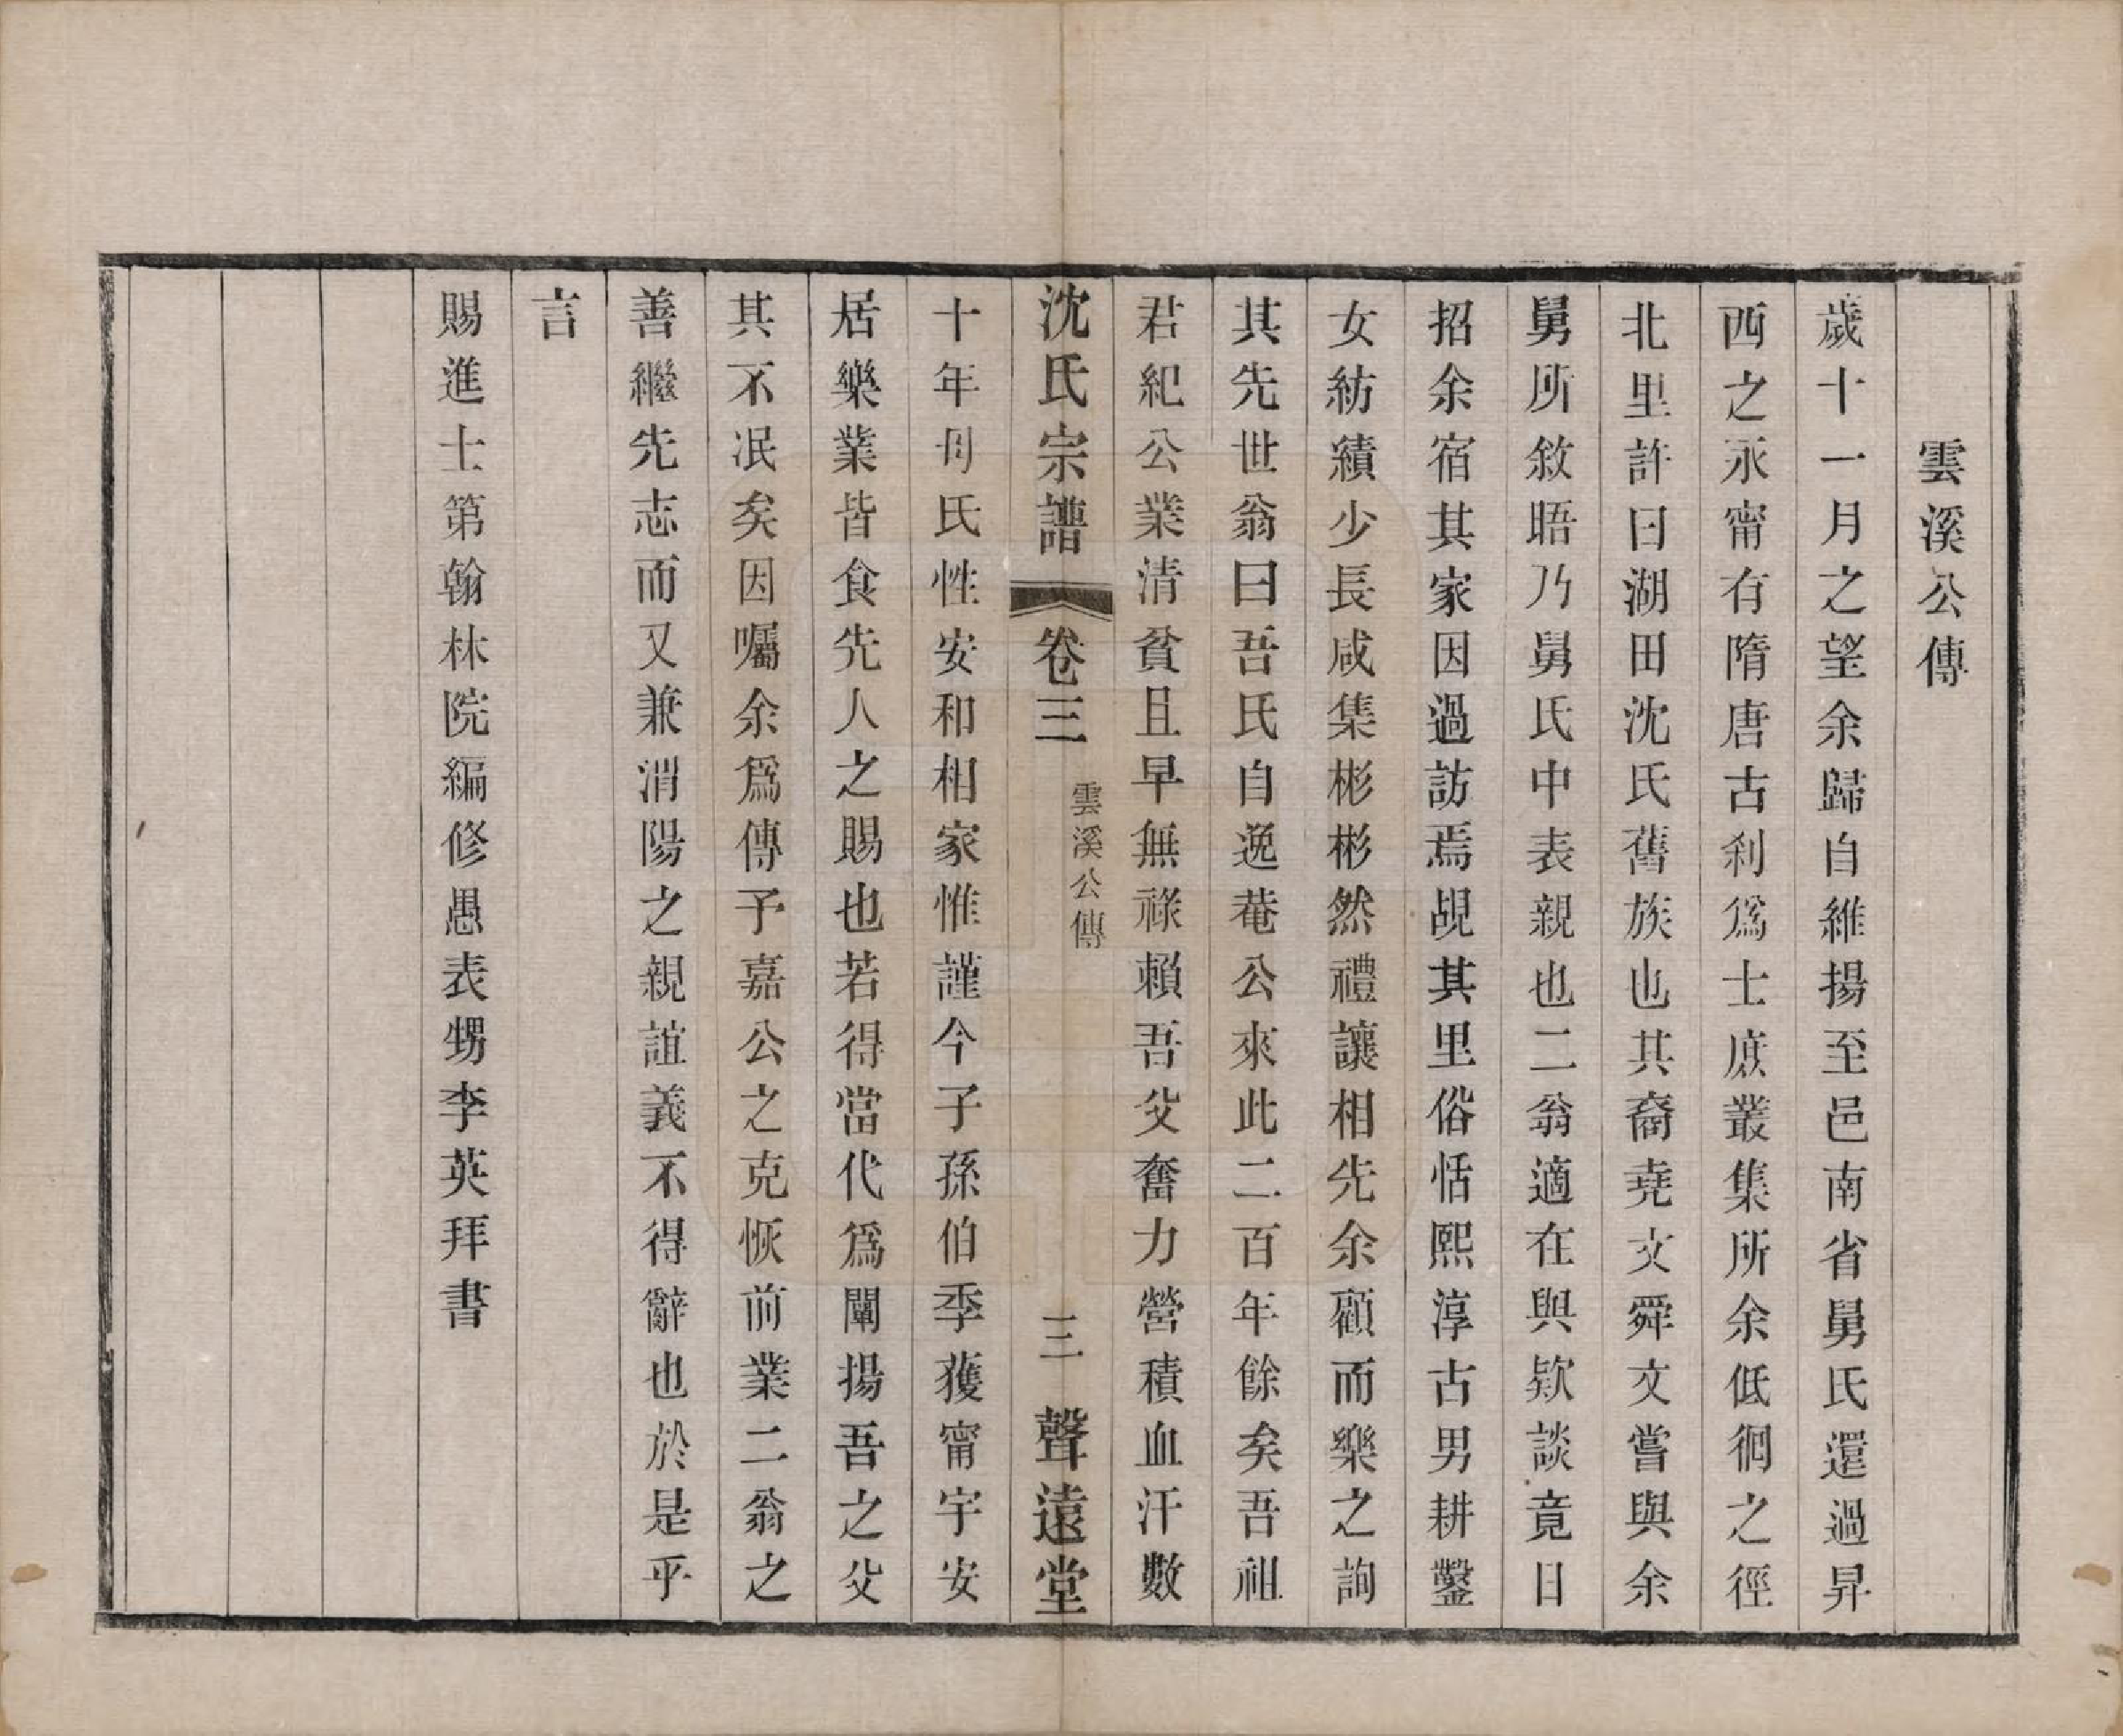 雲溪公傳
歲十一月之望余歸自維揚至邑南省舅氏還過昇
西之永甯有隋唐古刹爲士庶叢集所余低徊之徑
北里許曰湖田沈氏舊族也其裔堯文舜文嘗與余
舅所敘晤乃舅氏中表親也二翁適在與欵談竟日
招余宿其家因過訪焉覘其里俗恬熙淳古男耕鑿
女紡績少長咸集彬彬然禮讓相先余顧而樂之詢
其先世翁曰吾氏自逸菴公來此二百年餘矣吾祖
君紀公業清貧且早無祿賴吾父奮力營積血汗數
沈氏宗譜 卷三 雲溪公傳 三 聲遠堂
十年母氏性安和相家惟謹今子孫伯季獲甯宇安
居樂業皆食先人之賜也若得當代爲闡揚吾之父
其不泯矣因囑余爲傳予嘉公之克恢前業二翁之
善繼先志而又兼渭陽之親誼義不得辭也於是乎
言
賜進士第翰林院編修愚表甥李英拜書